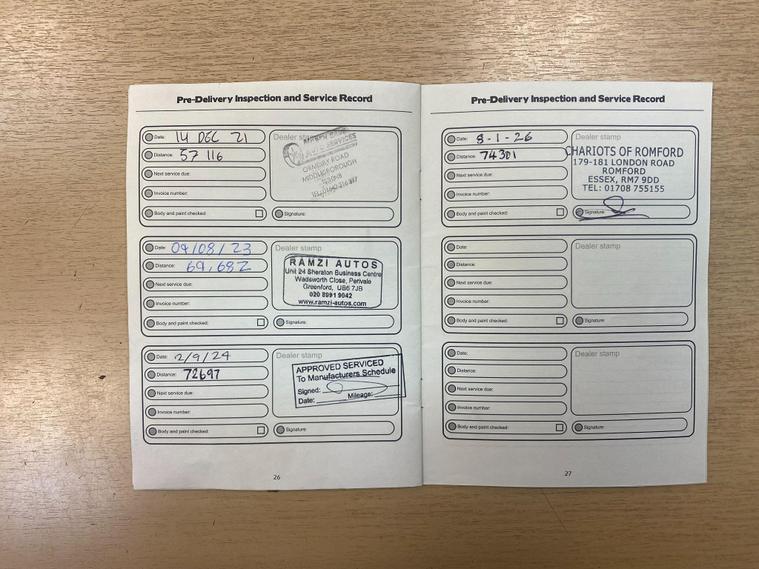 Pre-Delivery Inspection and Service Record
Date: 14 DEC 21
Distance: 57 116
Next service due:
Invoice number:
Body and paint checked:
Dealer stamp
AUTO SERVICES
ORMESBY ROAD
MIDDLESBROUGH
Signature:
Date: 04/08/23
Distance: 69,682
Next service due:
Invoice number:
Body and paint checked:
Dealer stamp
RAMZI AUTOS
Unit 24 Sheraton Business Centre
Wadsworth Close, Perivale
Greenford, UB6 7JB
020 8991 9042
www.ramzi-autos.com
Signature:
Date: 2/9/24
Distance: 72697
Next service due:
Invoice number:
Body and paint checked:
Dealer stamp
APPROVED SERVICED
To Manufacturers Schedule
Signed:
Date: Mileage:
Signature:
26
Pre-Delivery Inspection and Service Record
Date: 8-1-26
Distance: 74301
Next service due:
Invoice number:
Body and paint checked:
Dealer stamp
CHARIOTS OF ROMFORD
179-181 LONDON ROAD
ROMFORD
ESSEX, RM7 9DD
TEL: 01708 755155
Signature:
Date:
Distance:
Next service due:
Invoice number:
Body and paint checked:
Dealer stamp
Signature:
Date:
Distance:
Next service due:
Invoice number:
Body and paint checked:
Dealer stamp
Signature:
27